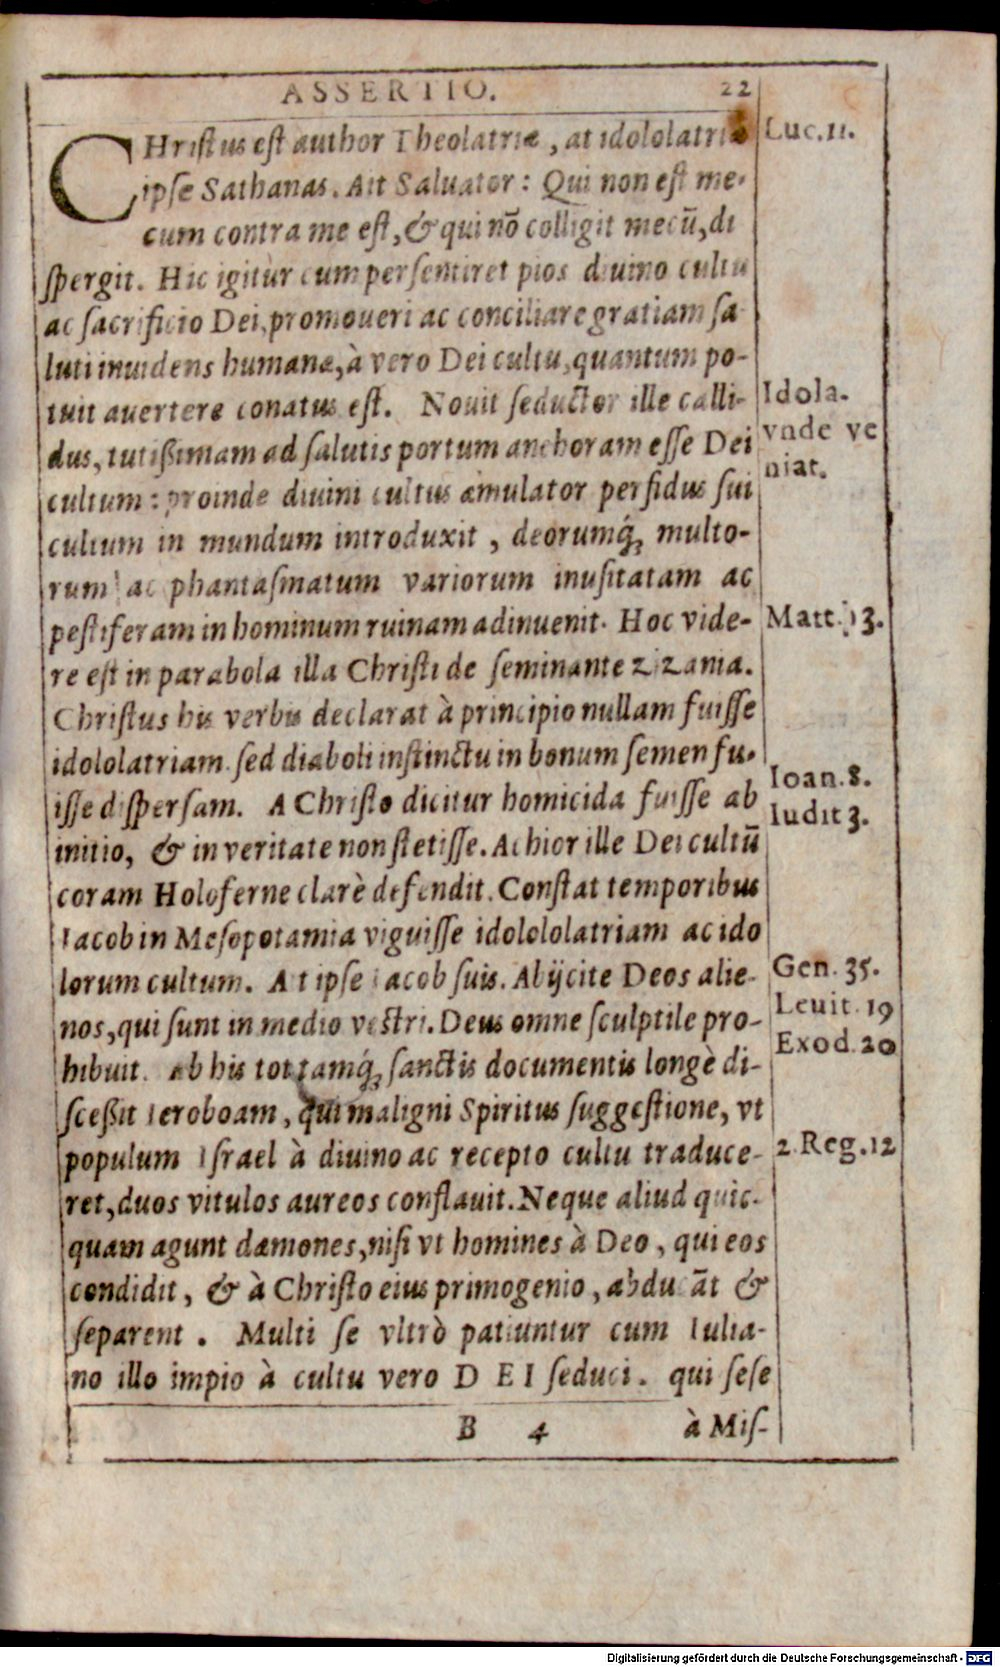 ASSERTIO. 22
CHristus est author Theolatriæ, at idololatriæ
ipse Sathanas. Ait Saluator: Qui non est me-
cum contra me est, & qui nõ colligit mecũ, di
spergit. Hic igitùr cum persentiret pios diuino cultu
ac sacrificio Dei, promoueri ac conciliare gratiam sa
luti inuidens humanæ, à vero Dei cultu, quantum po-
tuit auertere conatus est. Nouit seductor ille calli-
dus, tutißimam ad salutis portum anchoram esse Dei
cultum: proinde diuini cultus æmulator perfidus sui
cultum in mundum introduxit, deorumq́; multo-
rum ac phantasmatum variorum inusitatam ac
pestiferam in hominum ruinam adinuenit. Hoc vide-
re est in parabola illa Christi de seminante zizania.
Christus his verbis declarat à principio nullam fuisse
idololatriam sed diaboli instinctu in bonum semen fu-
isse dispersam. A Christo dicitur homicida fuisse ab
initio, & in veritate non stetisse. Achior ille Dei cultũ
coram Holoferne clarè defendit. Constat temporibus
Iacob in Mesopotamia viguisse idolololatriam ac ido
lorum cultum. At ipse Iacob suis. Abijcite Deos alie-
nos, qui sunt in medio vestri. Deus omne sculptile pro-
hibuit. ab his tot tamq́; sanctis documentis longè di-
sceßit Ieroboam, qui maligni Spiritus suggestione, vt
populum Israel à diuino ac recepto cultu traduce-
ret, duos vitulos aureos conflauit. Neque aliud quic-
quam agunt dæmones, nisi vt homines à Deo, qui eos
condidit, & à Christo eius primogenio, abducãt &
separent. Multi se vltrò patiuntur cum Iulia-
no illo impio à cultu vero DEI seduci. qui sese
B 4 à Mis-
Luc. 11.
Idola.
vnde ve
niat.
Matt. 13.
Ioan. 8.
Iudit 3.
Gen. 35.
Leuit. 19
Exod. 20
2. Reg. 12
Digitalisierung gefördert durch die Deutsche Forschungsgemeinschaft - DFG